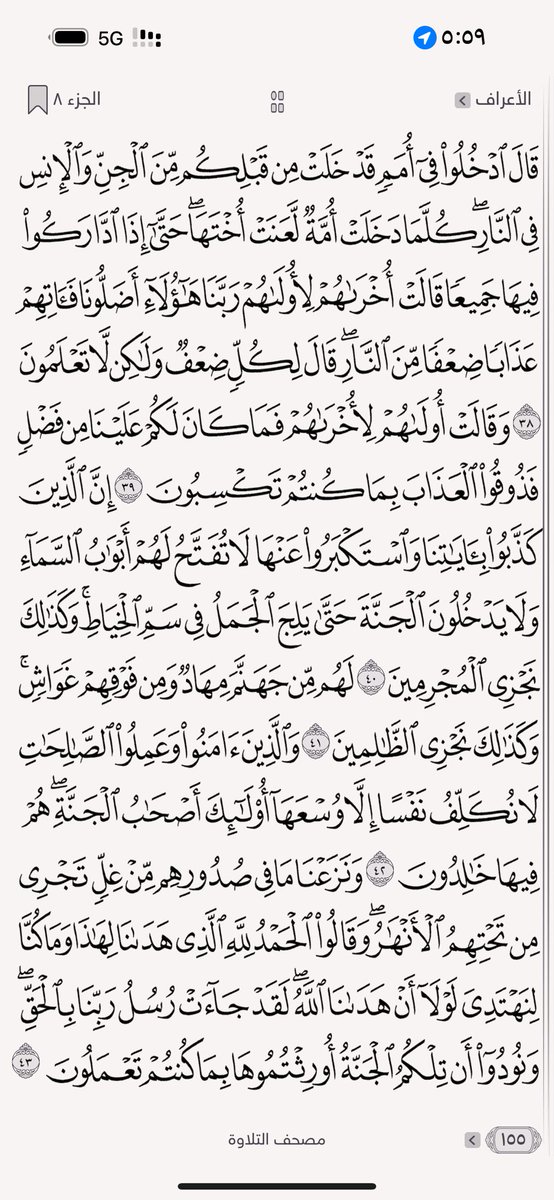 5G ٥:٥٩
الأعراف الجزء ٨
قَالَ ٱدۡخُلُواْ فِيٓ أُمَمٖ قَدۡ خَلَتۡ مِن قَبۡلِكُم مِّنَ ٱلۡجِنِّ وَٱلۡإِنسِ
فِي ٱلنَّارِۖ كُلَّمَا دَخَلَتۡ أُمَّةٞ لَّعَنَتۡ أُخۡتَهَاۖ حَتَّىٰٓ إِذَا ٱدَّارَكُواْ
فِيهَا جَمِيعٗا قَالَتۡ أُخۡرَىٰهُمۡ لِأُولَىٰهُمۡ رَبَّنَا هَٰٓؤُلَآءِ أَضَلُّونَا فَـَٔاتِهِمۡ
عَذَابٗا ضِعۡفٗا مِّنَ ٱلنَّارِۖ قَالَ لِكُلّٖ ضِعۡفٞ وَلَٰكِن لَّا تَعۡلَمُونَ
٣٨ وَقَالَتۡ أُولَىٰهُمۡ لِأُخۡرَىٰهُمۡ فَمَا كَانَ لَكُمۡ عَلَيۡنَا مِن فَضۡلٖ
فَذُوقُواْ ٱلۡعَذَابَ بِمَا كُنتُمۡ تَكۡسِبُونَ ٣٩ إِنَّ ٱلَّذِينَ
كَذَّبُواْ بِـَٔايَٰتِنَا وَٱسۡتَكۡبَرُواْ عَنۡهَا لَا تُفَتَّحُ لَهُمۡ أَبۡوَٰبُ ٱلسَّمَآءِ
وَلَا يَدۡخُلُونَ ٱلۡجَنَّةَ حَتَّىٰ يَلِجَ ٱلۡجَمَلُ فِي سَمِّ ٱلۡخِيَاطِۚ وَكَذَٰلِكَ
نَجۡزِي ٱلۡمُجۡرِمِينَ ٤٠ لَهُم مِّن جَهَنَّمَ مِهَادٞ وَمِن فَوۡقِهِمۡ غَوَاشٖۚ
وَكَذَٰلِكَ نَجۡزِي ٱلظَّٰلِمِينَ ٤١ وَٱلَّذِينَ ءَامَنُواْ وَعَمِلُواْ ٱلصَّٰلِحَٰتِ
لَا نُكَلِّفُ نَفۡسًا إِلَّا وُسۡعَهَآ أُوْلَٰٓئِكَ أَصۡحَٰبُ ٱلۡجَنَّةِۖ هُمۡ
فِيهَا خَٰلِدُونَ ٤٢ وَنَزَعۡنَا مَا فِي صُدُورِهِم مِّنۡ غِلّٖ تَجۡرِي
مِن تَحۡتِهِمُ ٱلۡأَنۡهَٰرُۖ وَقَالُواْ ٱلۡحَمۡدُ لِلَّهِ ٱلَّذِي هَدَىٰنَا لِهَٰذَا وَمَا كُنَّا
لِنَهۡتَدِيَ لَوۡلَآ أَنۡ هَدَىٰنَا ٱللَّهُۖ لَقَدۡ جَآءَتۡ رُسُلُ رَبِّنَا بِٱلۡحَقِّۖ
وَنُودُوٓاْ أَن تِلۡكُمُ ٱلۡجَنَّةُ أُورِثۡتُمُوهَا بِمَا كُنتُمۡ تَعۡمَلُونَ ٤٣
١٥٥ مصحف التلاوة